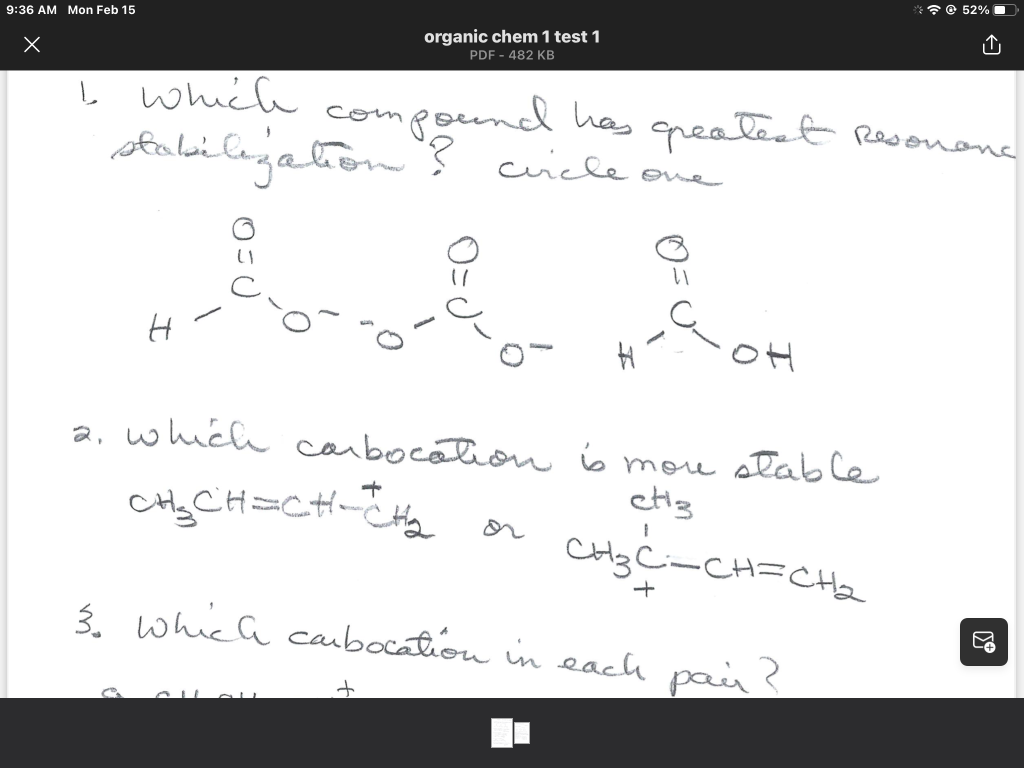 9:36 AM Mon Feb 15
52%
organic chem 1 test 1
PDF - 482 KB
1. Which compound has greatest Resonanc
stabilization? circle one
O O O
|| || ||
C C C
H - O⁻ ⁻O - O⁻ H OH
2. which carbocation is more stable
CH₃CH=CH-C⁺H₂ or CH₃C⁺(CH₃)-CH=CH₂
3. Which carbocation in each pair?